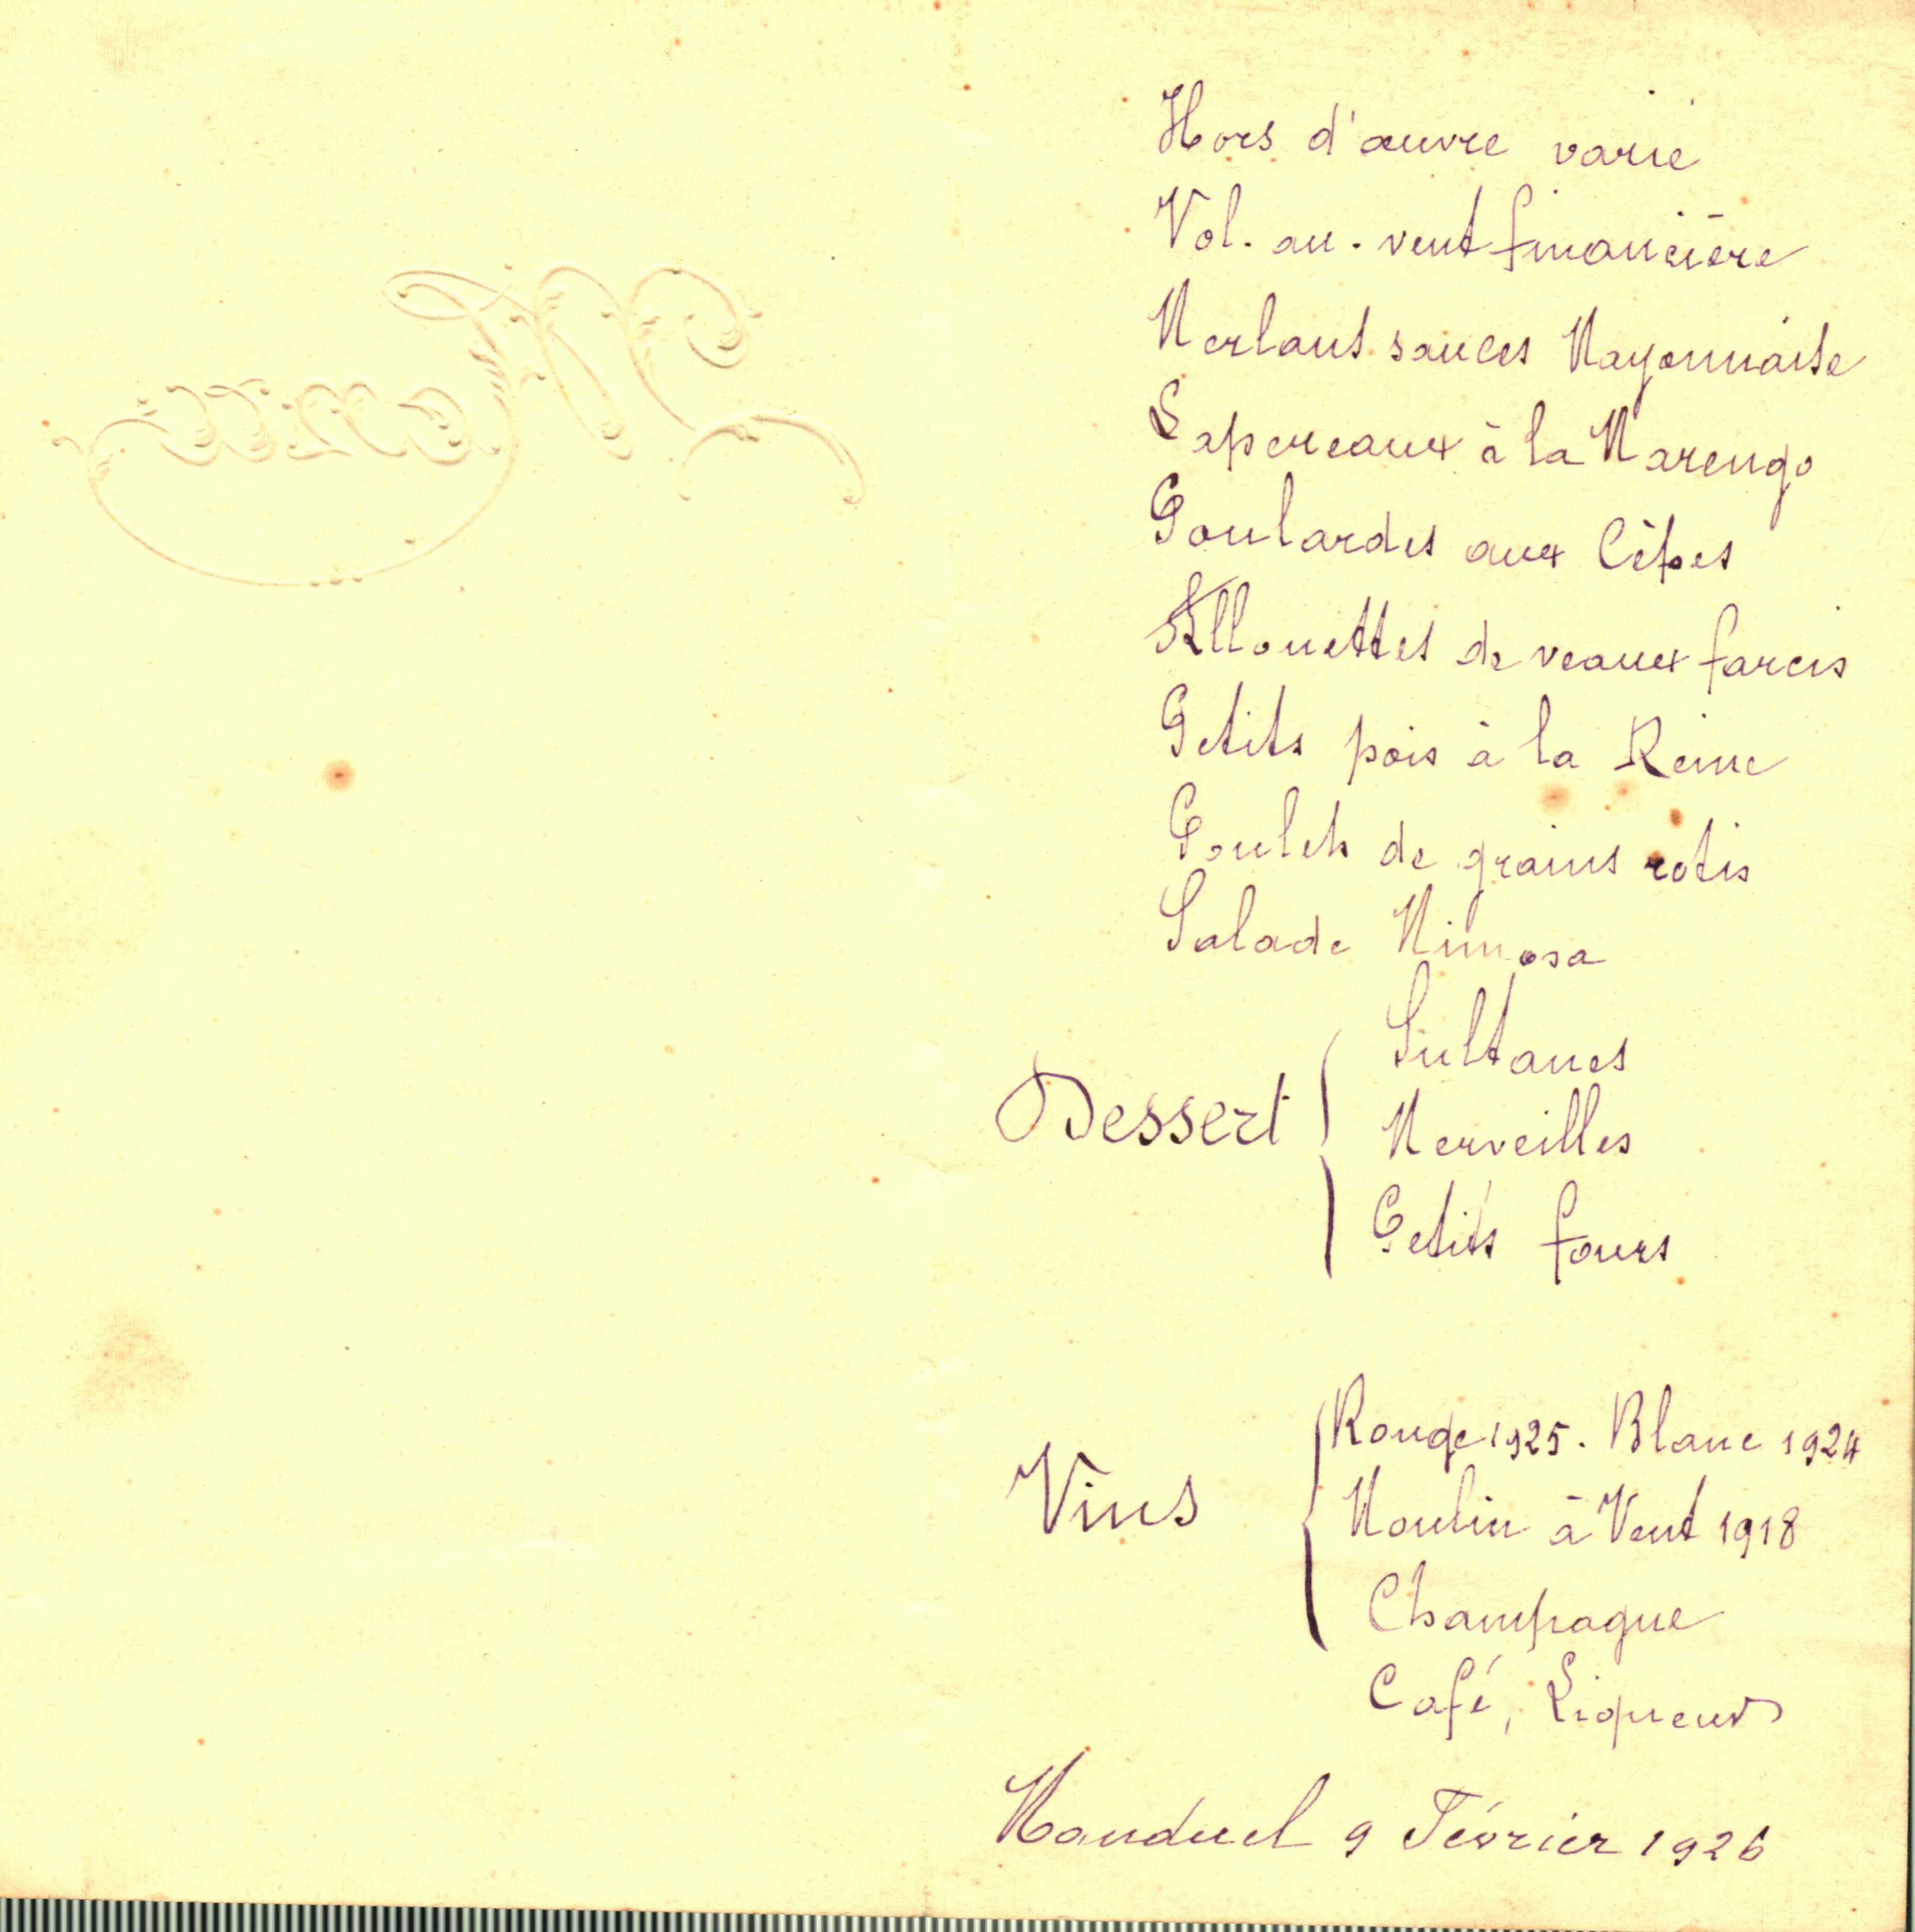 Menu
Hors d'œuvre varié
Vol-au-vent financière
Merlant sauces Mayonnaise
Lapereaux à la Marengo
Poulardes aux Cèpes
Allouettes de veaux farcis
Petits pois à la Reine
Poulets de grains rotis
Salade Mimosa
Dessert { Sultanes
Merveilles
Petits fours
Vins { Rouge 1925. Blanc 1924
Moulin à Vent 1918
Champagne
Café, Liqueurs
Manduel 9 Février 1926